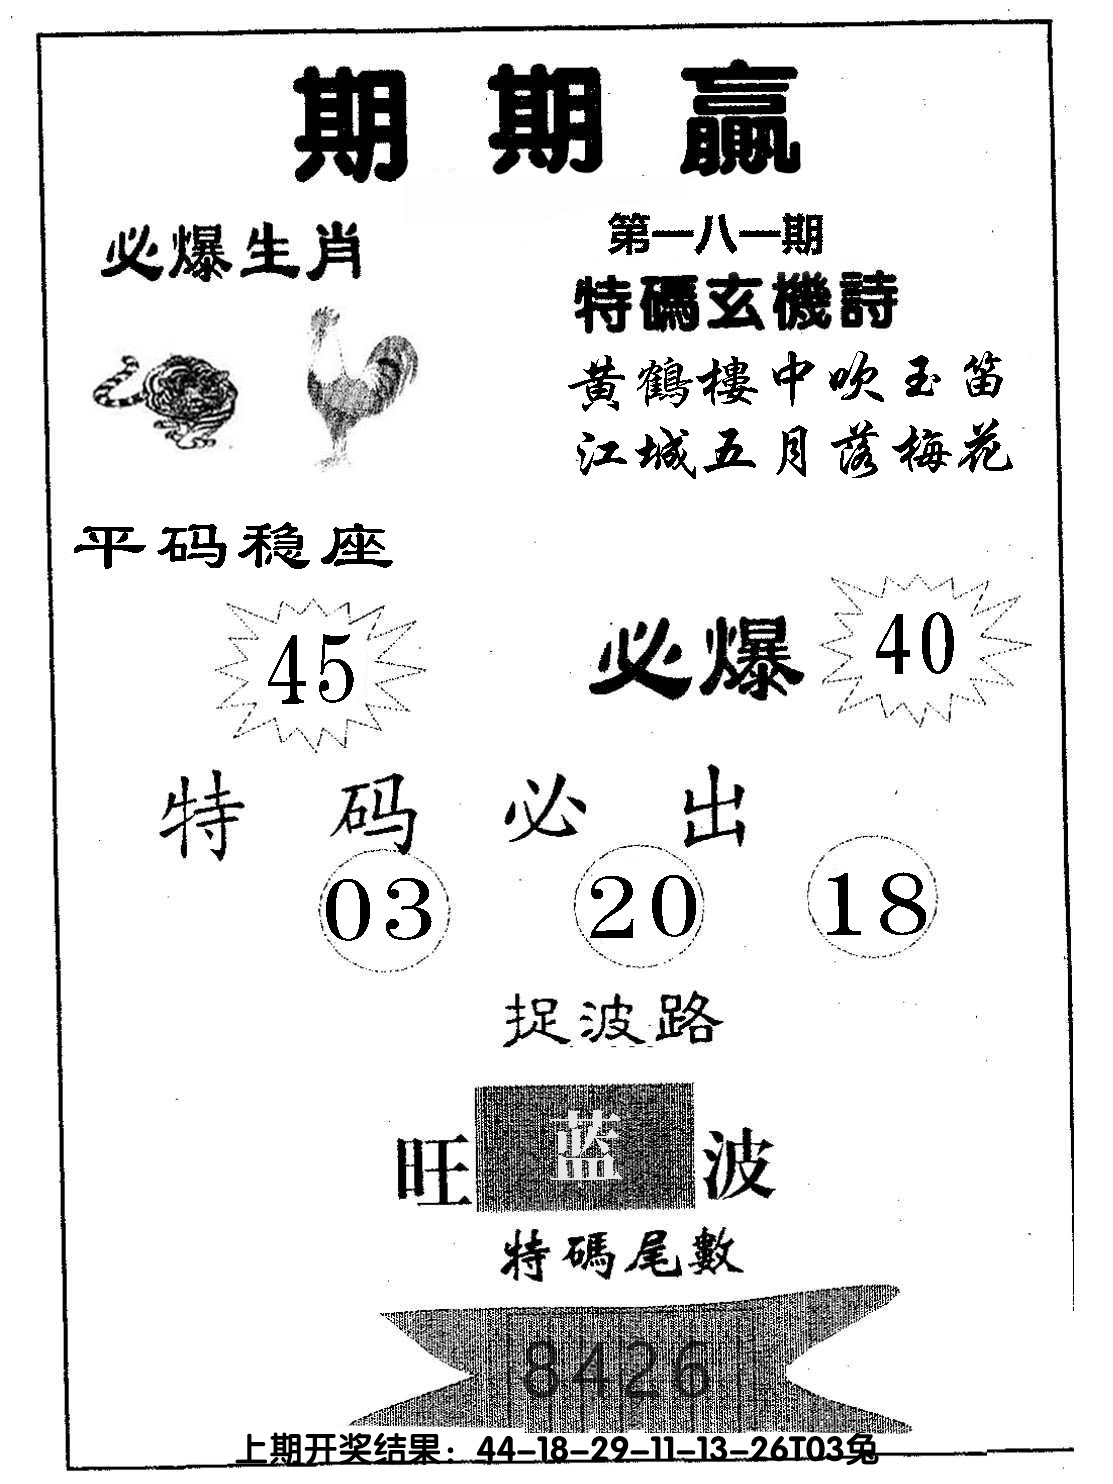 期期赢
必爆生肖
第一八一期
特碼玄機詩
黄鶴樓中吹玉笛
江城五月落梅花
平码稳座
45
必爆 40
特码必出
03 20 18
捉波路
旺蓝波
特碼尾數
8426
上期开奖结果：44-18-29-11-13-26T03兔